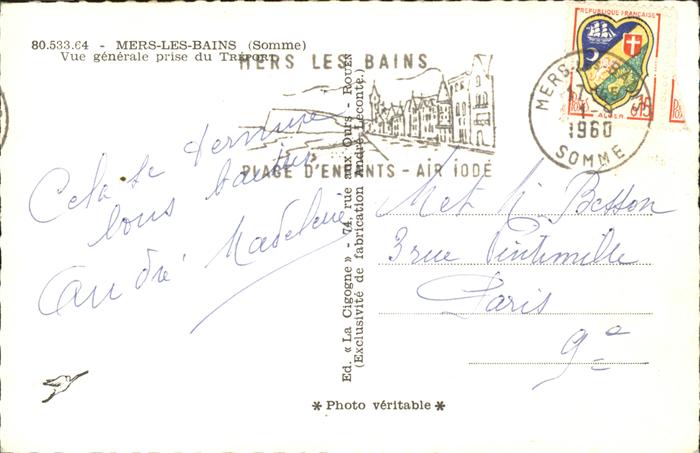 80.533.64 - MERS-LES-BAINS (Somme)
Vue générale prise du TRÉPORT
MERS LES BAINS
PLAGE D'ENFANTS - AIR IODÉ
REPUBLIQUE FRANÇAISE
ALGER
MERS
17
1960
SOMME
Cela se termine
bons baisers
André Madeleine
Ed. « La Cigogne » - 74, rue aux Ours - ROUEN
(Exclusivité de fabrication André Leconte.)
Met Mr Besson
3 rue Vintimille
Paris
9e
* Photo véritable *